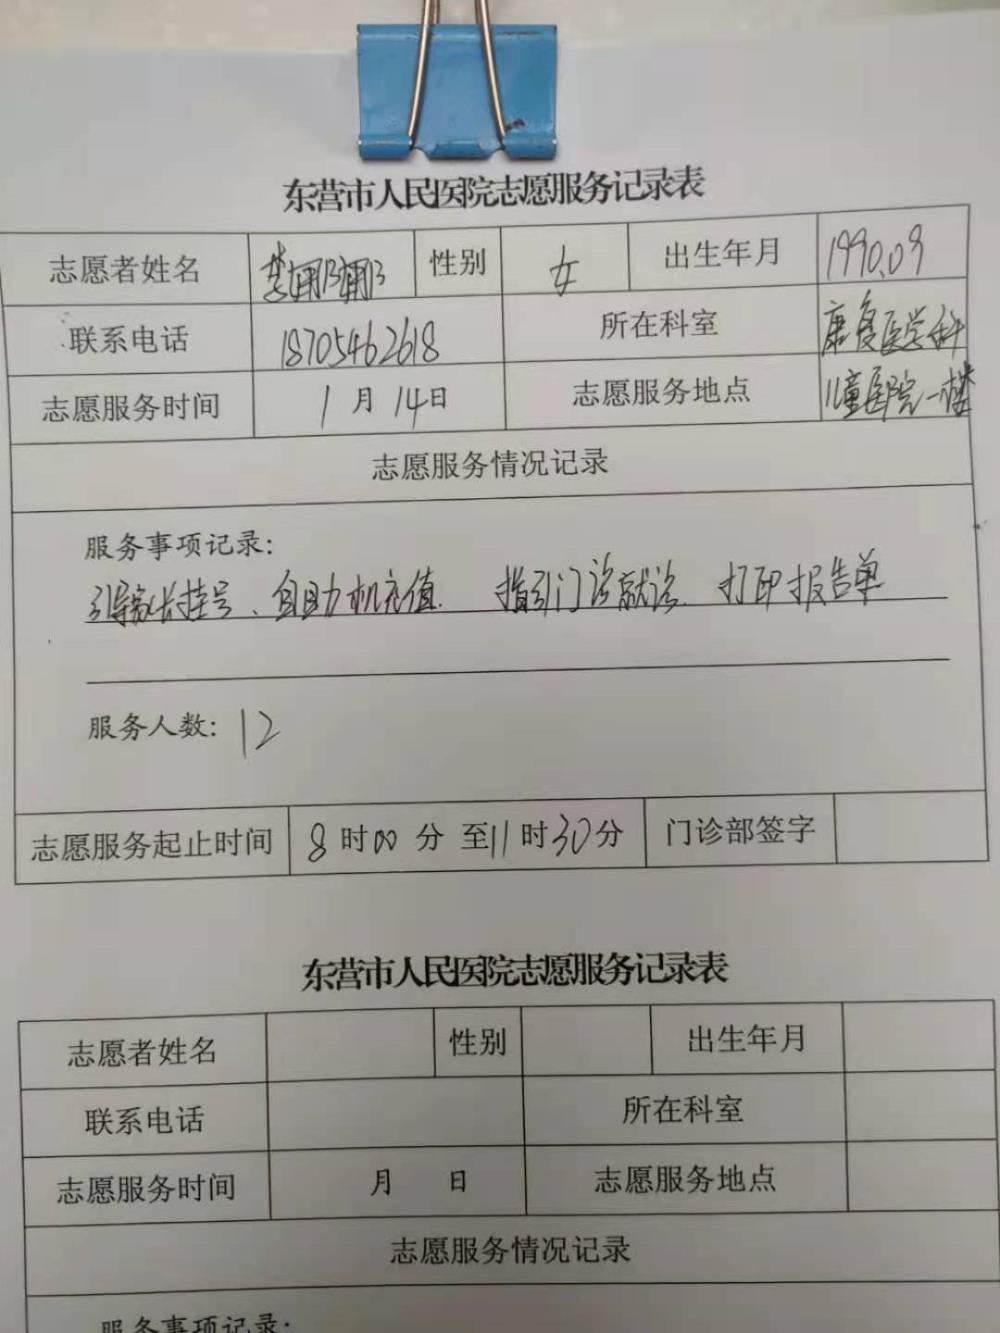 东营市人民医院志愿服务记录表
志愿者姓名 李娜娜 性别 女 出生年月 1990.09
联系电话 18705462618 所在科室 康复医学科
志愿服务时间 1月14日 志愿服务地点 儿童医院一楼
志愿服务情况记录
服务事项记录:
引导家长挂号、自助机充值. 指引门诊就诊. 打印报告单
服务人数: 12
志愿服务起止时间 8时00分至11时30分 门诊部签字
东营市人民医院志愿服务记录表
志愿者姓名 性别 出生年月
联系电话 所在科室
志愿服务时间 月 日 志愿服务地点
志愿服务情况记录
服务事项记录: